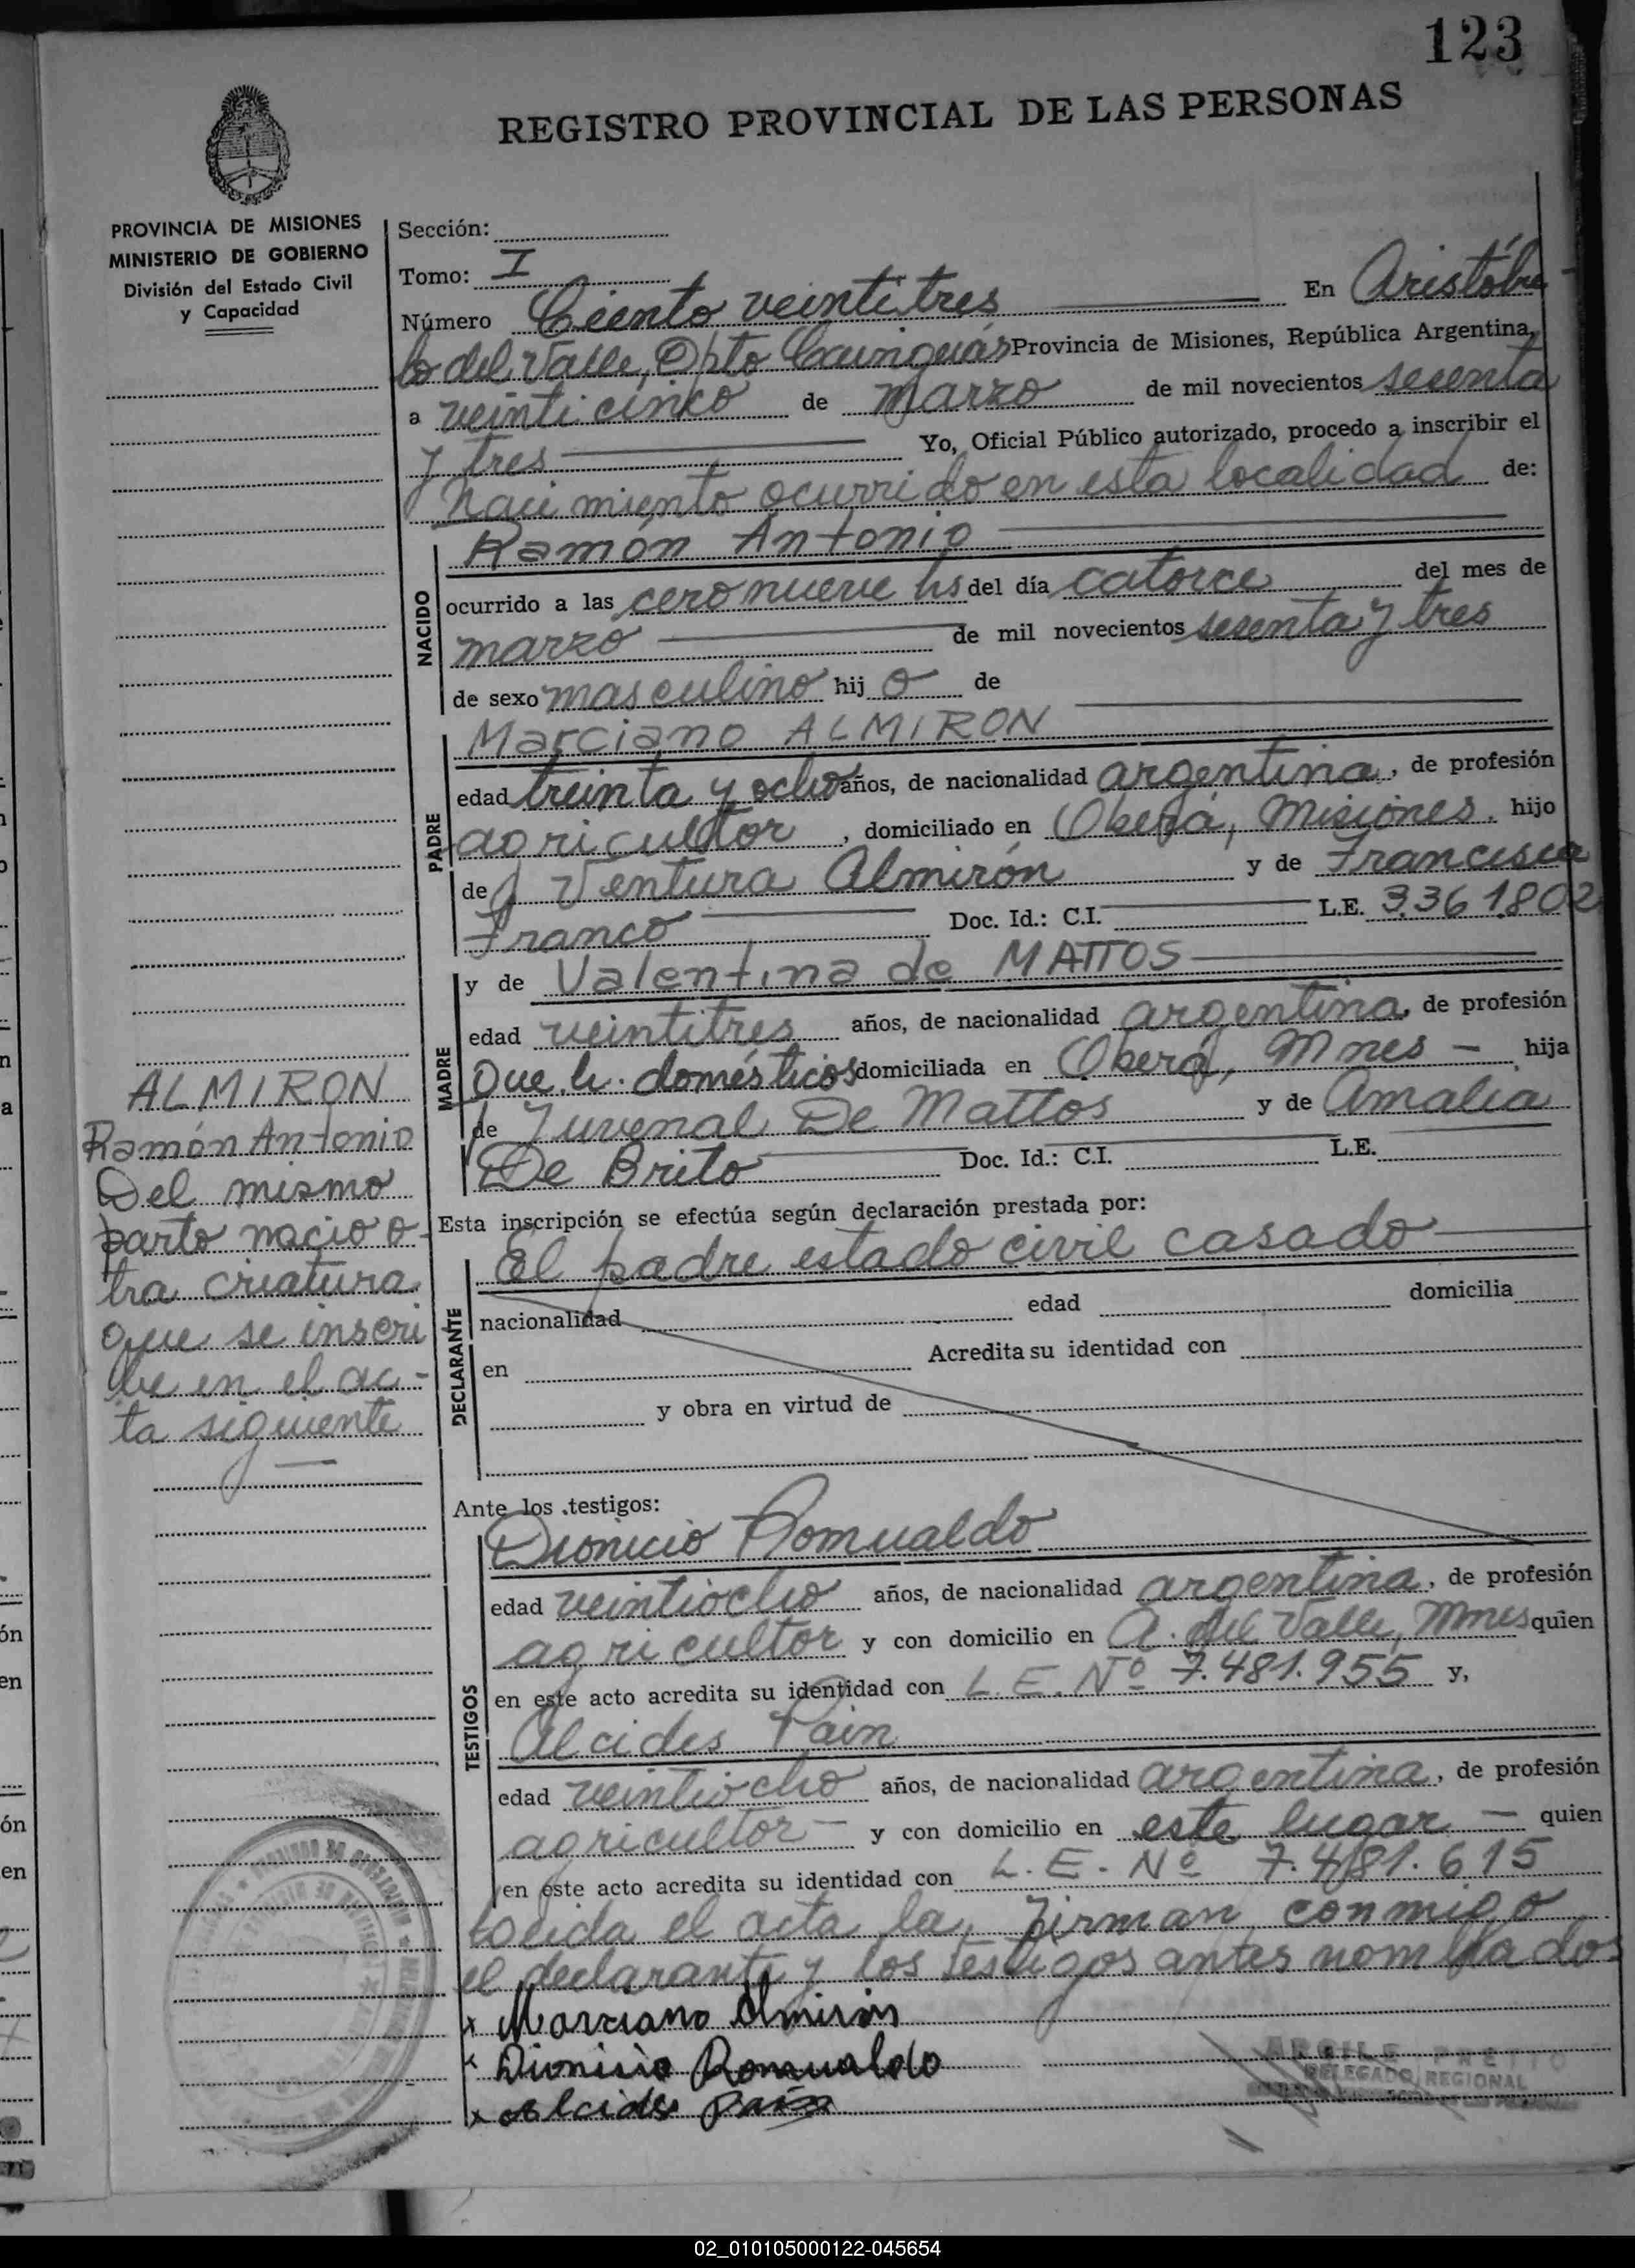 123
REGISTRO PROVINCIAL DE LAS PERSONAS
PROVINCIA DE MISIONES
MINISTERIO DE GOBIERNO
División del Estado Civil
y Capacidad
Sección:
Tomo: I
Número Ciento veintitres En Aristóbu-
lo del Valle, Dpto Cainguás Provincia de Misiones, República Argentina,
a veinticinco de marzo de mil novecientos sesenta
y tres Yo, Oficial Público autorizado, procedo a inscribir el
nacimiento ocurrido en esta localidad de:
NACIDO
Ramón Antonio
ocurrido a las cero nueve hs del día catorce del mes de
marzo de mil novecientos sesenta y tres
de sexo masculino hij o de
PADRE
Marciano ALMIRON
edad treinta y ocho años, de nacionalidad argentina, de profesión
agricultor, domiciliado en Oberá, Misiones, hijo
de Ventura Almirón y de Francisca
Franco Doc. Id.: C.I. L.E. 3.361.802
MADRE
y de Valentina de MATTOS
edad veintitres años, de nacionalidad argentina, de profesión
Que h. domésticos domiciliada en Oberá, Mnes - hija
de Juvenal De Mattos y de Amalia
De Brito Doc. Id.: C.I. L.E.
ALMIRON
Ramón Antonio
Del mismo
parto nacio o-
tra criatura
que se inscri
be en el ac-
ta siguiente
Esta inscripción se efectúa según declaración prestada por:
DECLARANTE
El padre estado civil casado
nacionalidad edad domicilia
en Acredita su identidad con
y obra en virtud de
Ante los testigos:
TESTIGOS
Dionicio Romualdo
edad veintiocho años, de nacionalidad argentina, de profesión
agricultor y con domicilio en A. del Valle, Mnes quien
en este acto acredita su identidad con L.E. Nº 7.481.955 y,
Alcides Pain
edad veintiocho años, de nacionalidad argentina, de profesión
agricultor - y con domicilio en este lugar - quien
en este acto acredita su identidad con L.E. Nº 7.481.615
Leida el acta la firman conmigo
el declarante y los testigos antes nombrados
x Marciano Almirón
x Dionisio Romualdo
x Alcides Pain
DELEGADO REGIONAL
02_010105000122-045654